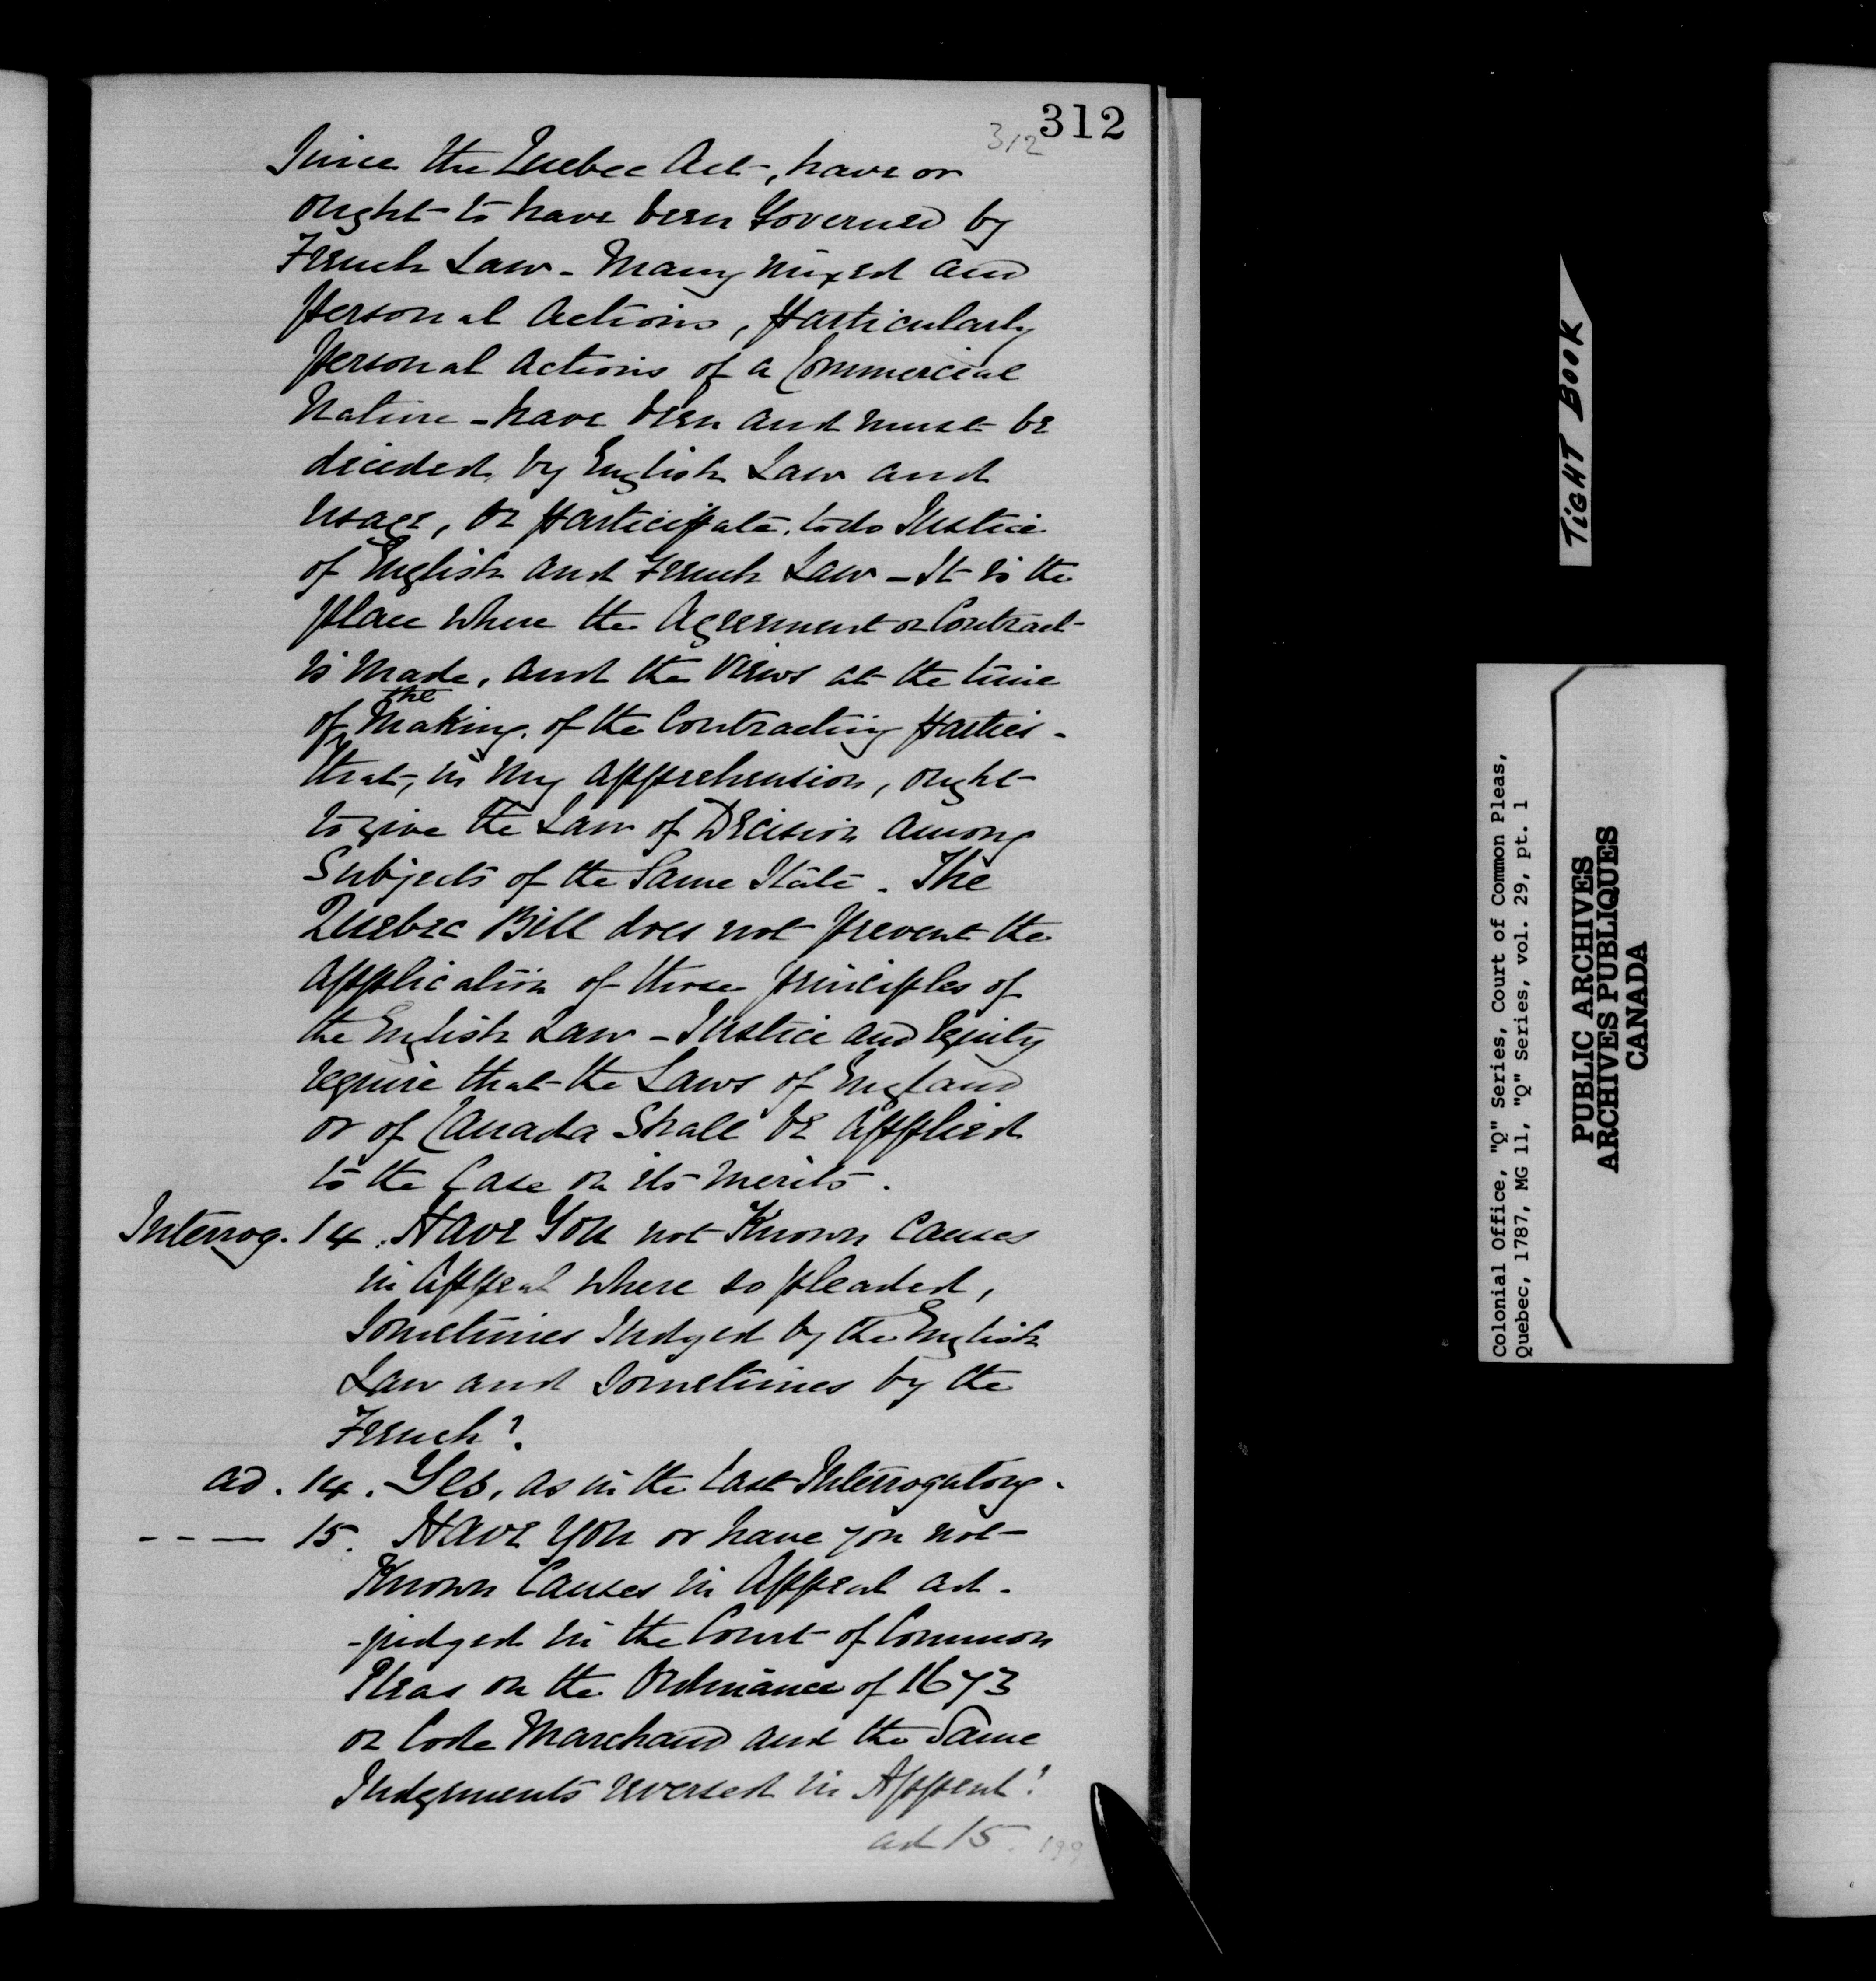 312
312
Since the Quebec Act, have or
ought to have been Governed by
French Law - Many mixed and
personal Actions, particularly
personal Actions of a Commercial
Nature - have been and must be
decided, by English Law and
usage, or participate, to do Justice
of English and French Law - It is the
place where the Agreement or Contract
is made, and the views at the time
of the making, of the Contracting parties -
that, in my apprehension, ought
to give the Law of Decision among
Subjects of the Same State. The
Quebec Bill does not prevent the
application of those principles of
the English Law - Justice and Equity
require that the Laws of England
or of Canada Shall be applied
to the Case on its merits.
Interrog. 14. Have You not Known Causes
in Appeal where so pleaded,
Sometimes Judged by the English
Law and Sometimes by the
French?
ad. 14. Yes, as in the last Interrogatory.
- - — 15. Have You or have you not
Known Causes in Appeal ad-
-judged in the Court of Common
Pleas on the Ordinance of 1673
or Code Marchand and the Same
Judgments reversed in Appeal?
ad 15. 199
TIGHT BOOK
Colonial Office, "Q" Series, Court of Common Pleas,
Quebec, 1787, MG 11, "Q" Series, vol. 29, pt. 1
PUBLIC ARCHIVES
ARCHIVES PUBLIQUES
CANADA